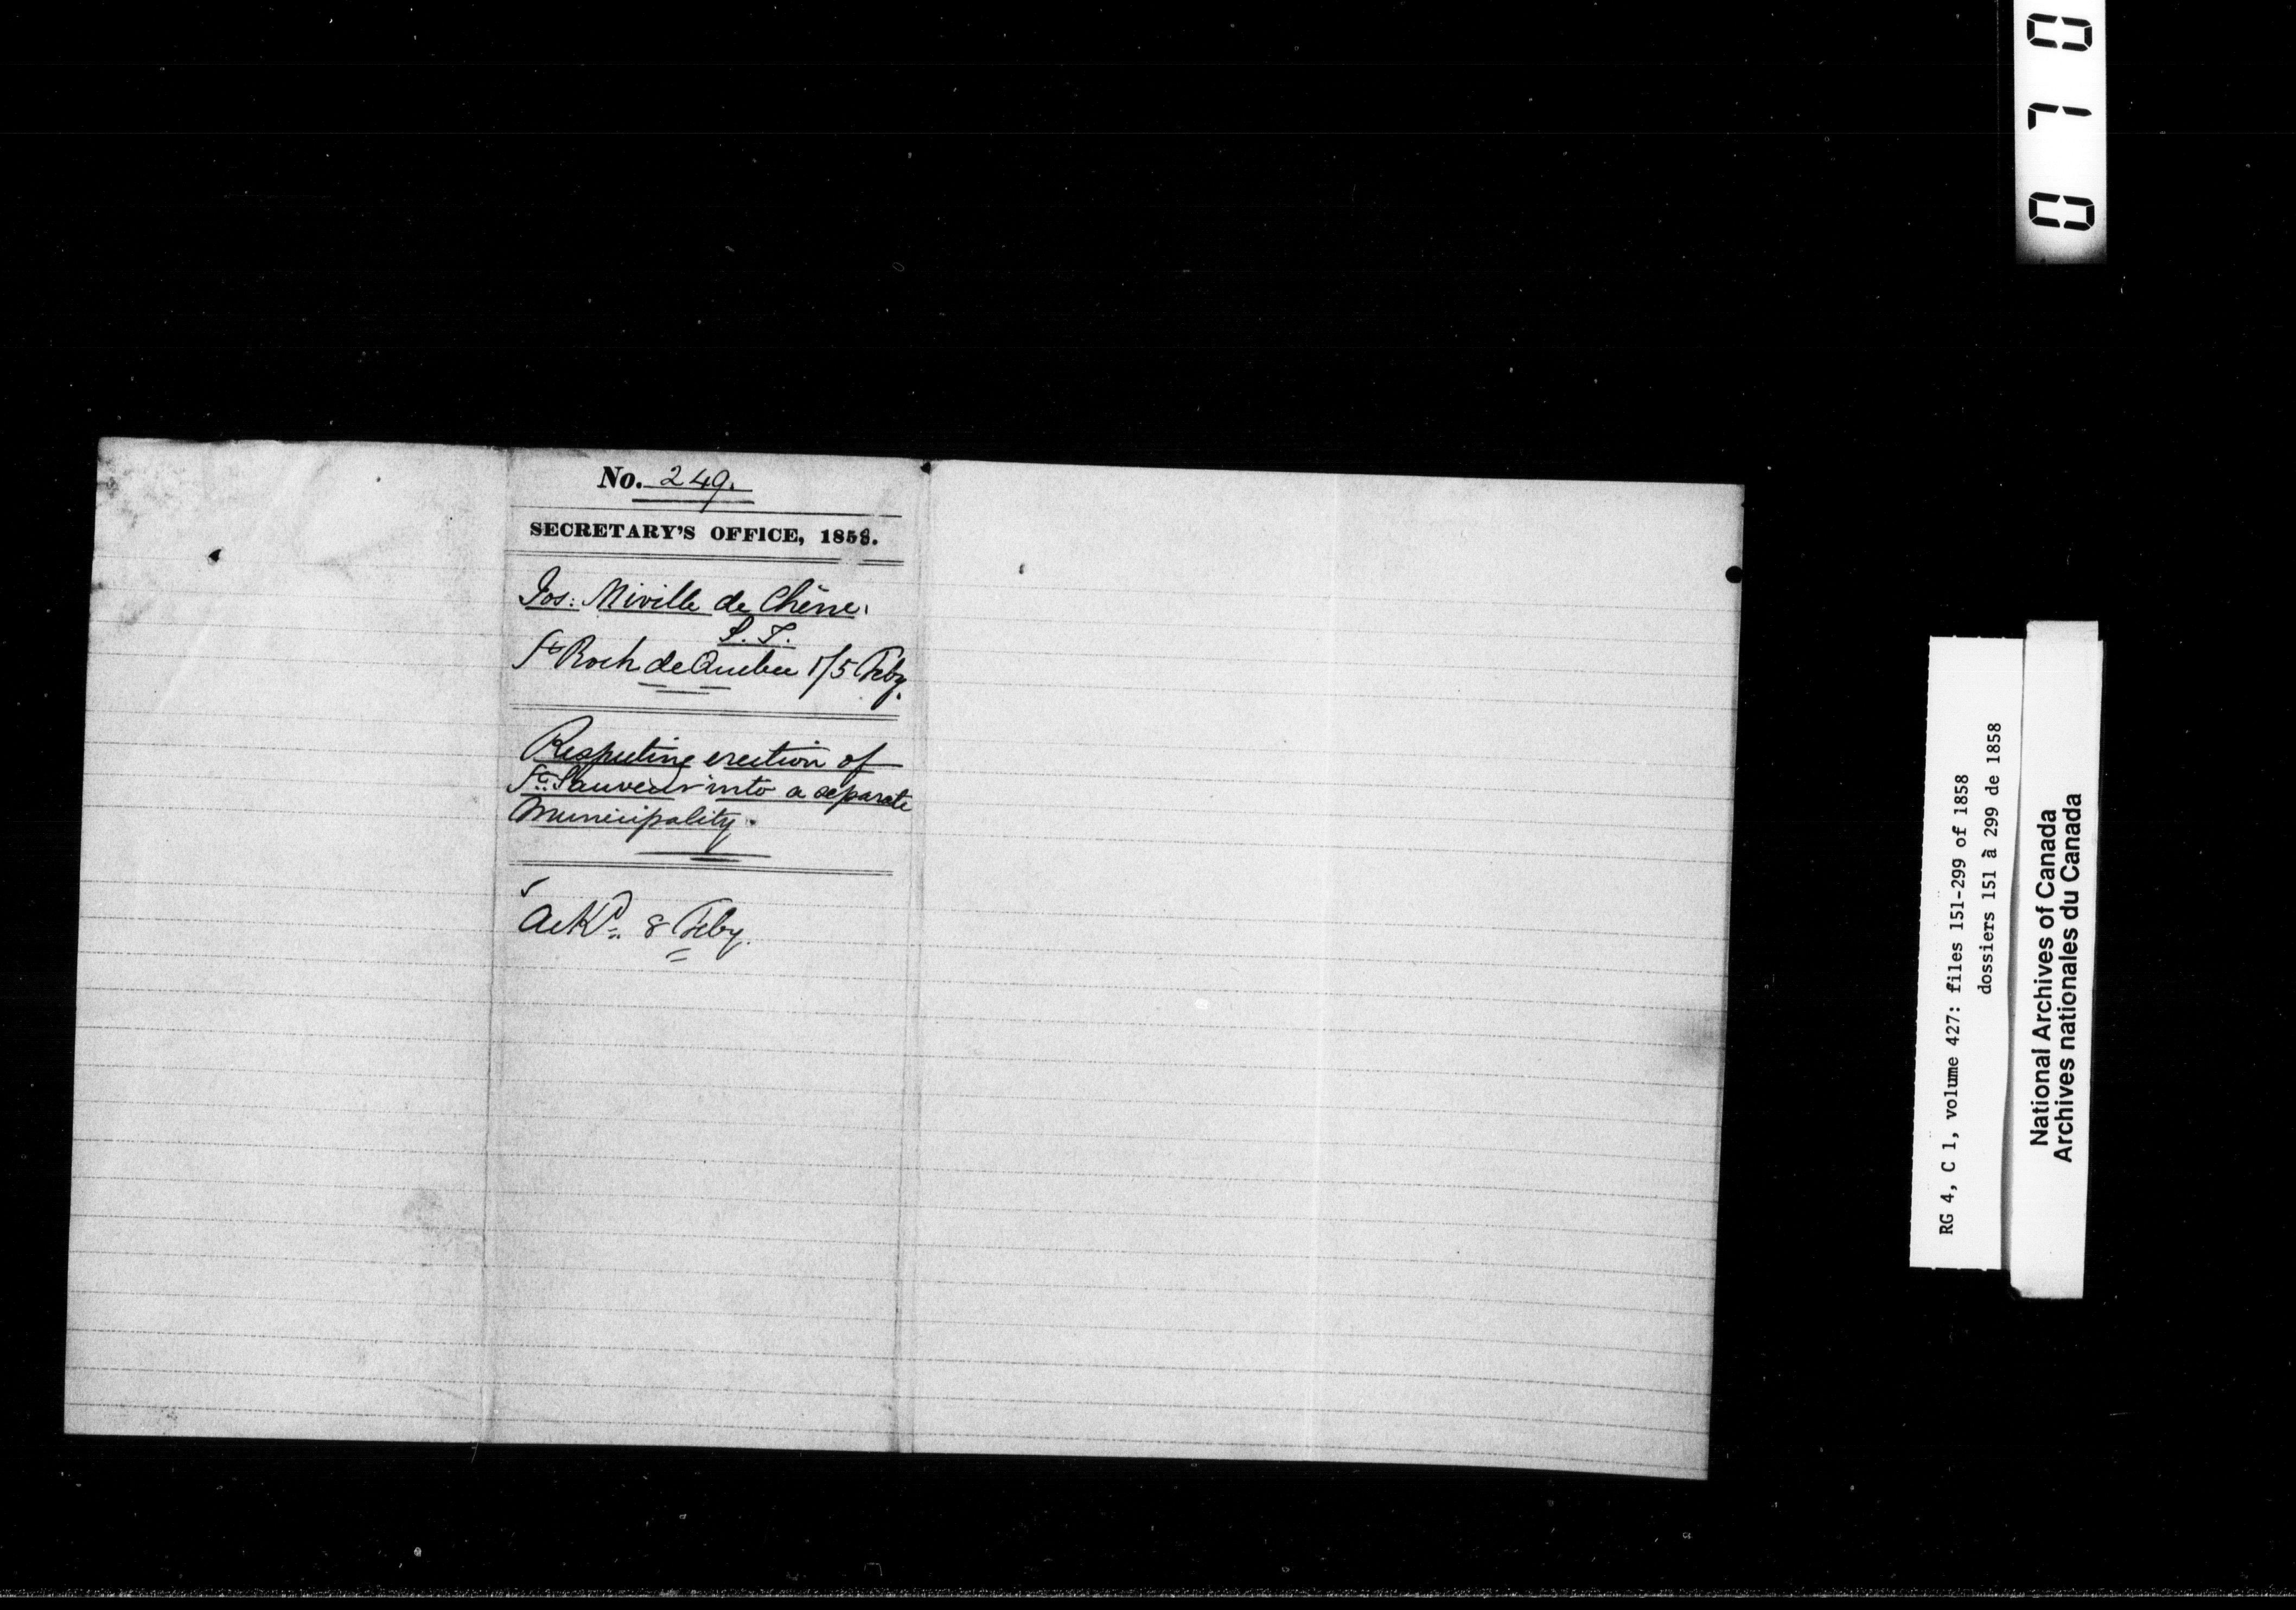 No. 249.
SECRETARY'S OFFICE, 1858.
Jos: Miville de Chêne.
S. T.
St Roch de Quebec 1/5 Feby.
Respecting erection of
St. Sauveur into a separate
Municipality.
Ackd. 8 Feby.
0 7 0
RG 4, C 1, volume 427: files 151-299 of 1858
dossiers 151 à 299 de 1858
National Archives of Canada
Archives nationales du Canada